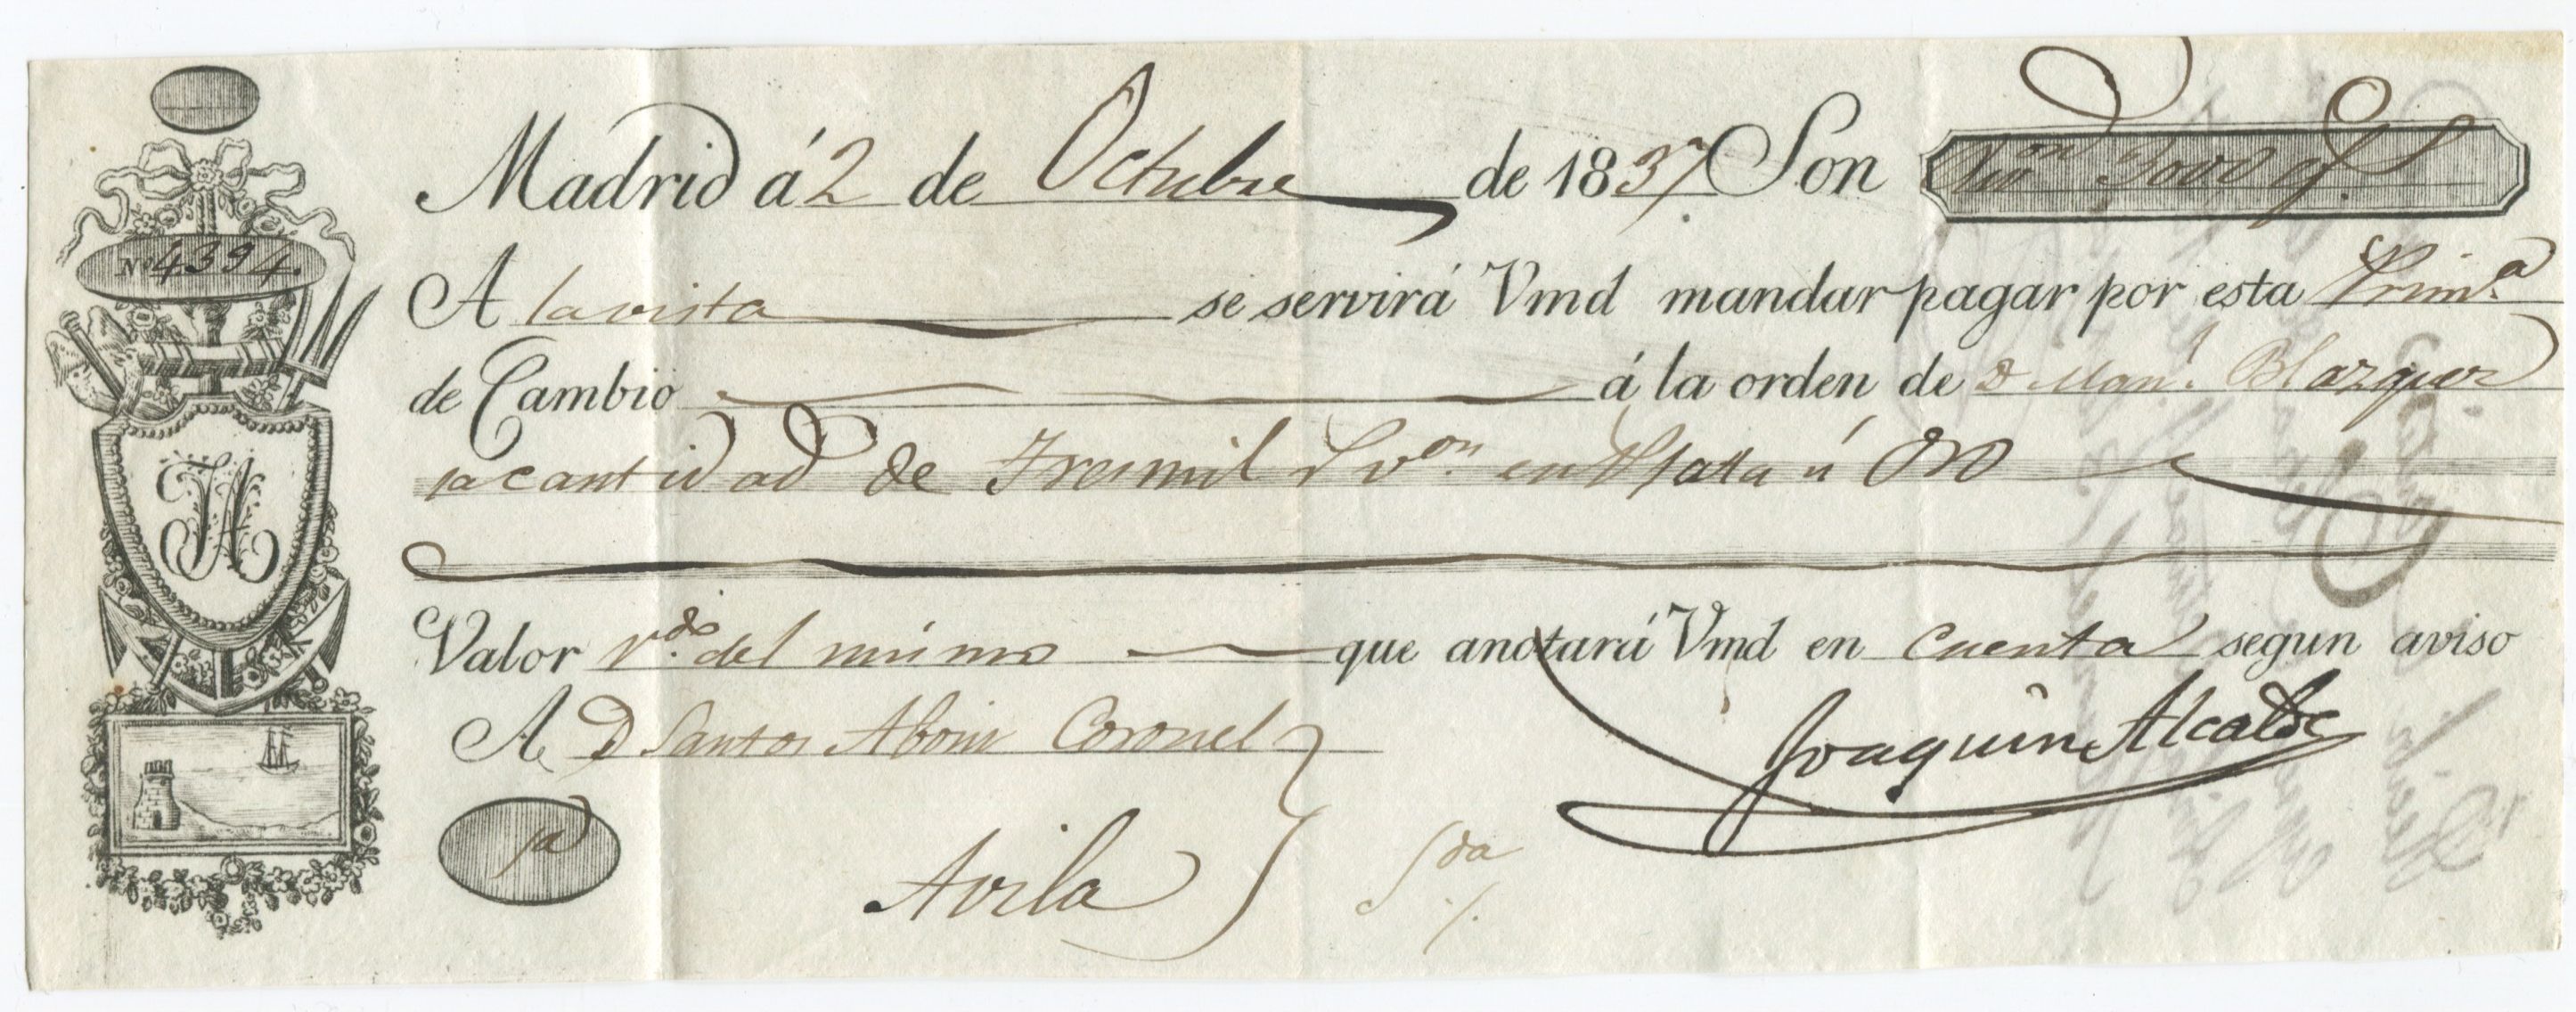 Madrid á 2 de Octubre de 1837 Son Rvon 3000 rs
Nº 4394.
A la vista se servirá Vmd mandar pagar por esta Prim.a
de Cambio á la orden de D Man.l Blazquez
la cantidad de Tres mil r von. en Plata ú Oro
JA
Valor r.do del mismo que anotará Vmd en cuenta segun aviso
A D Santos Aboin Coronel
Joaquin Alcalde
1a
Avila